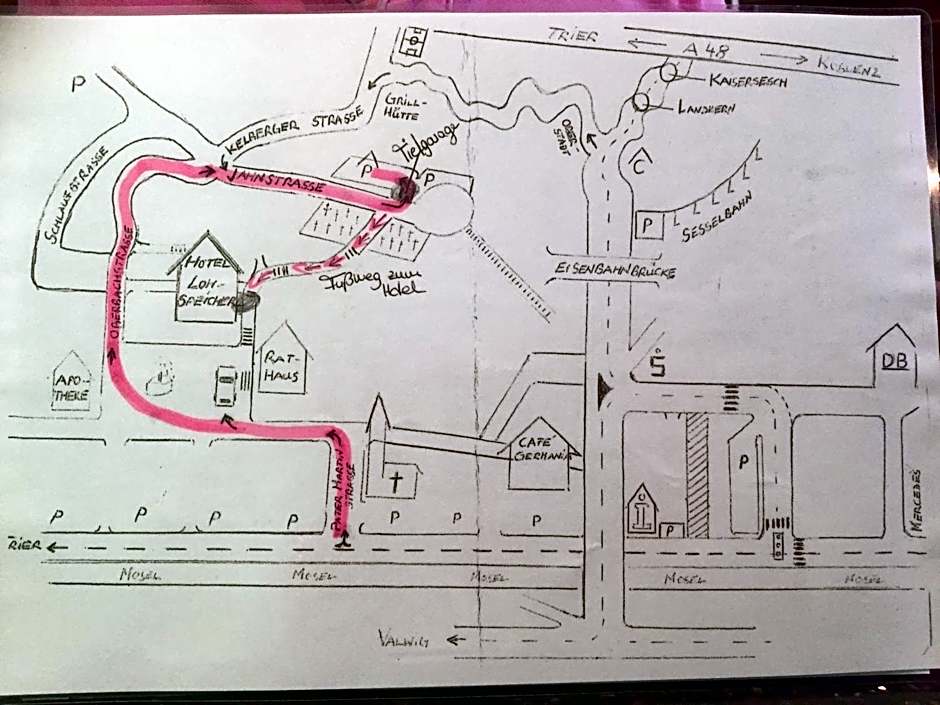 TRIER
A 48
KOBLENZ
KAISERSESCH
LANDKERN
P
GRILL-
HÜTTE
KELBERGER STRASSE
OBER-
STADT
Tiefgarage
P
P
JAHNSTRASSE
SCHLAUFSTRASSE
C
P
SESSELBAHN
OBERBACHSTRASSE
HOTEL
LOH-
SPEICHER
Fußweg zum
Hotel
EISENBAHNBRÜCKE
APO-
THEKE
RAT-
HAUS
S
DB
CAFÉ
GERMANIA
PATER MARTIN
STRASSE
P
MERCEDES
i
P
P
P
P
P
P
P
P
TRIER
MOSEL
MOSEL
MOSEL
MOSEL
MOSEL
VALWIG